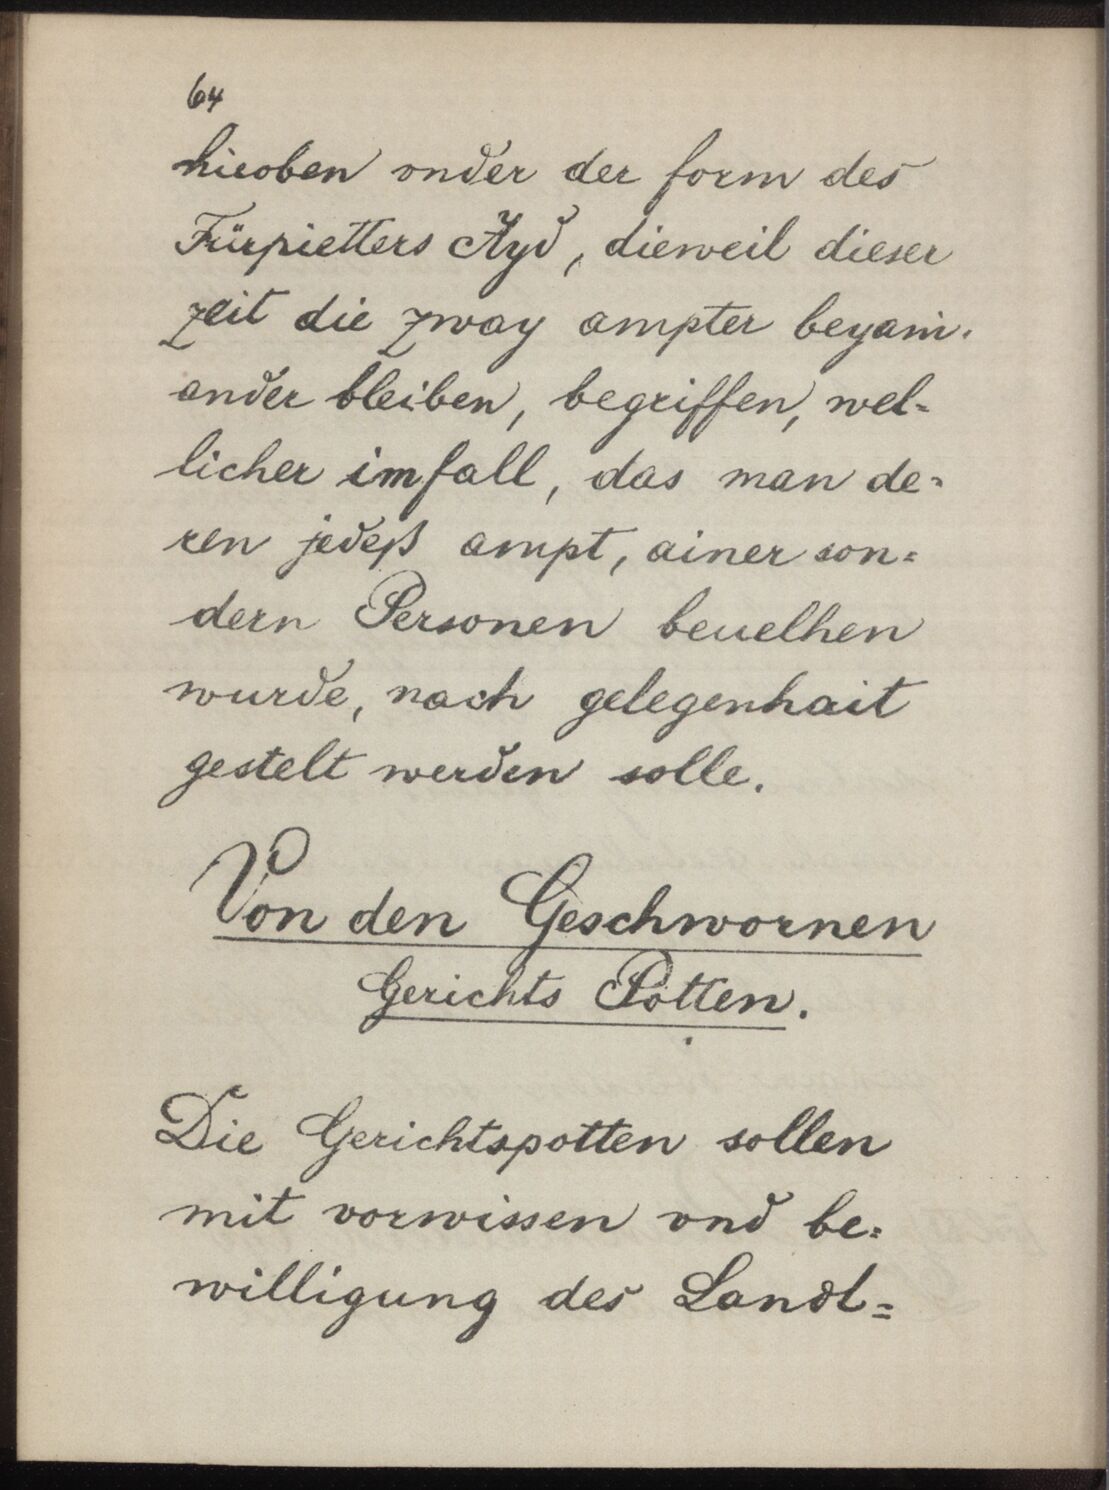 64
hieoben vnder der form des
Fürpietters Ayd, dieweil dieser
zeit die zway ampter beyain-
ander bleiben, begriffen, wel-
licher imfall, das man de-
ren jedeß ampt, ainer son-
dern Personen beuelhen
wurde, nach gelegenhait
gestelt werden solle.
Von den Geschwornen
Gerichts Potten.
Die Gerichtspotten sollen
mit vorwissen vnd be-
willigung des Landt-